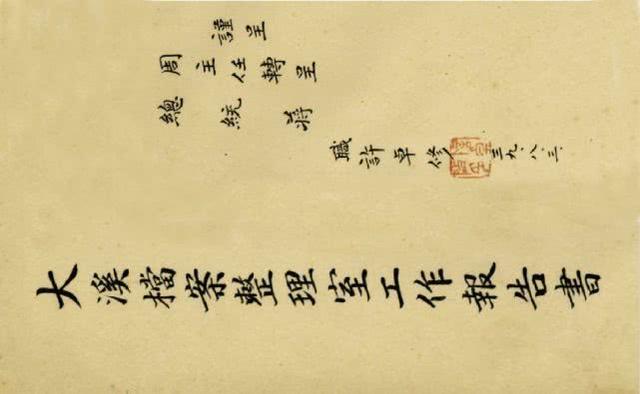 謹呈
周主任轉呈
總統 蔣
職許卓修 三九.八.三.
大溪檔案整理室工作報告書